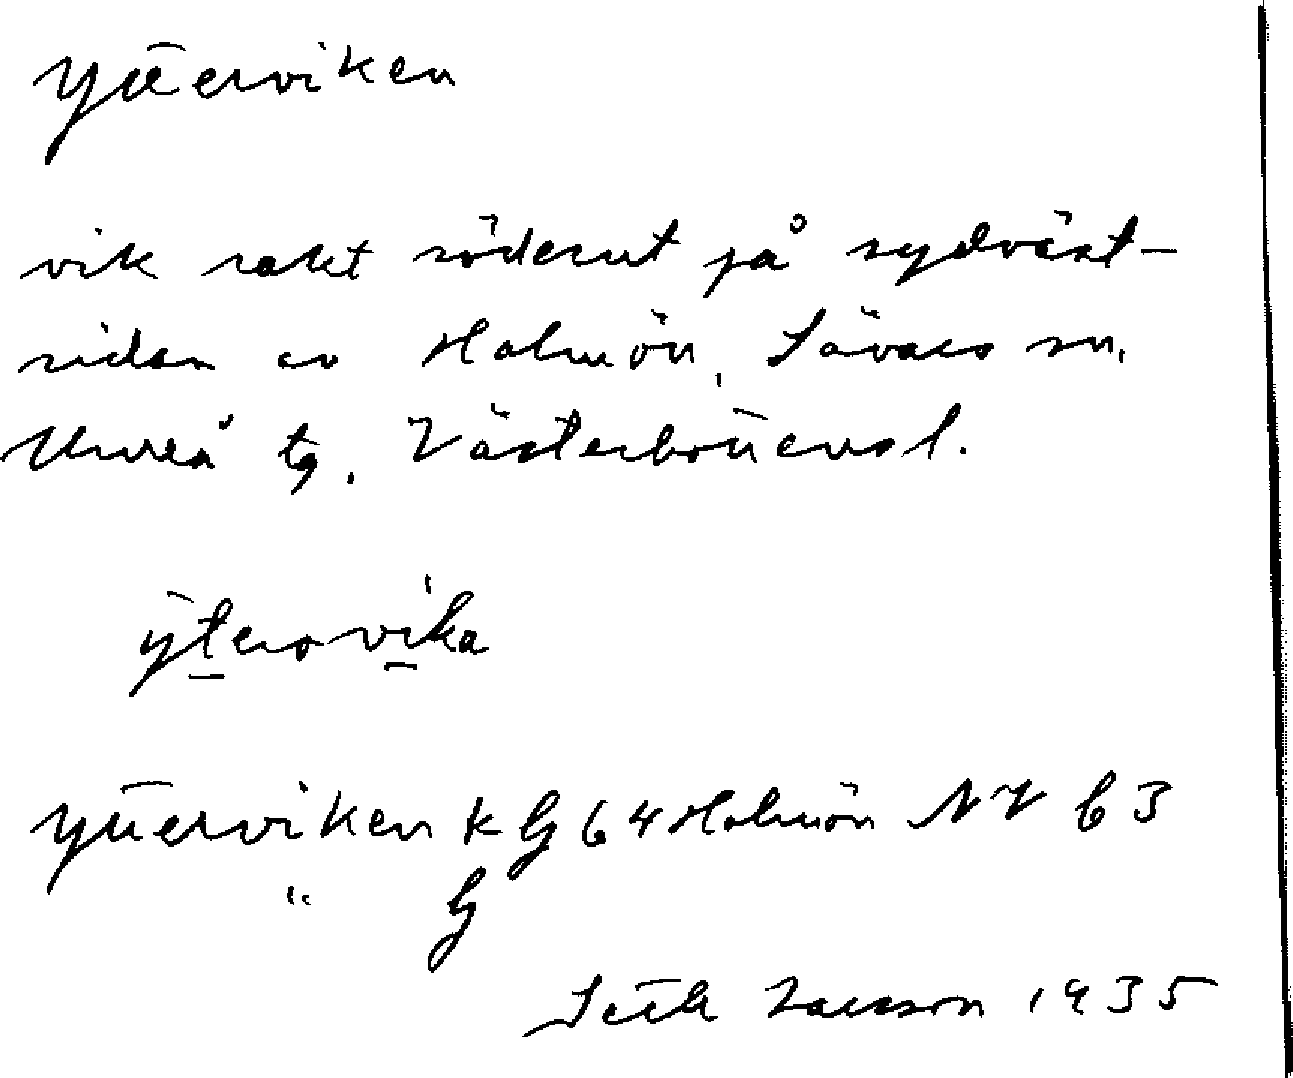 Ytterviken
vik rakt söderut på sydväst-
sidan av Holmön, Sävars sn,
Umeå tg. Västerbottens l.
ÿterovika
Ytterviken k G 64 Holmön NV 63
" G
Seth Larsson 1935